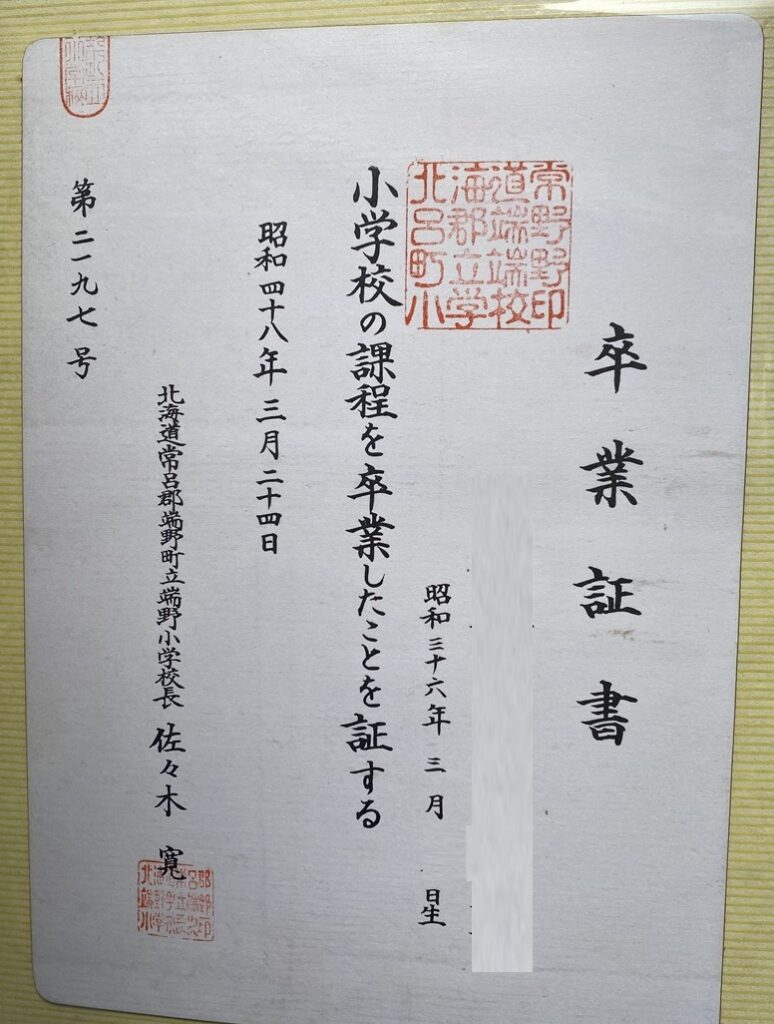 卒業証書
昭和三十六年三月 日生
小学校の課程を卒業したことを証する
昭和四十八年三月二十四日
北海道常呂郡端野町立端野小学校長 佐々木 寛
第二一九七号
北海道常
呂郡端野
町立端野
小学校印